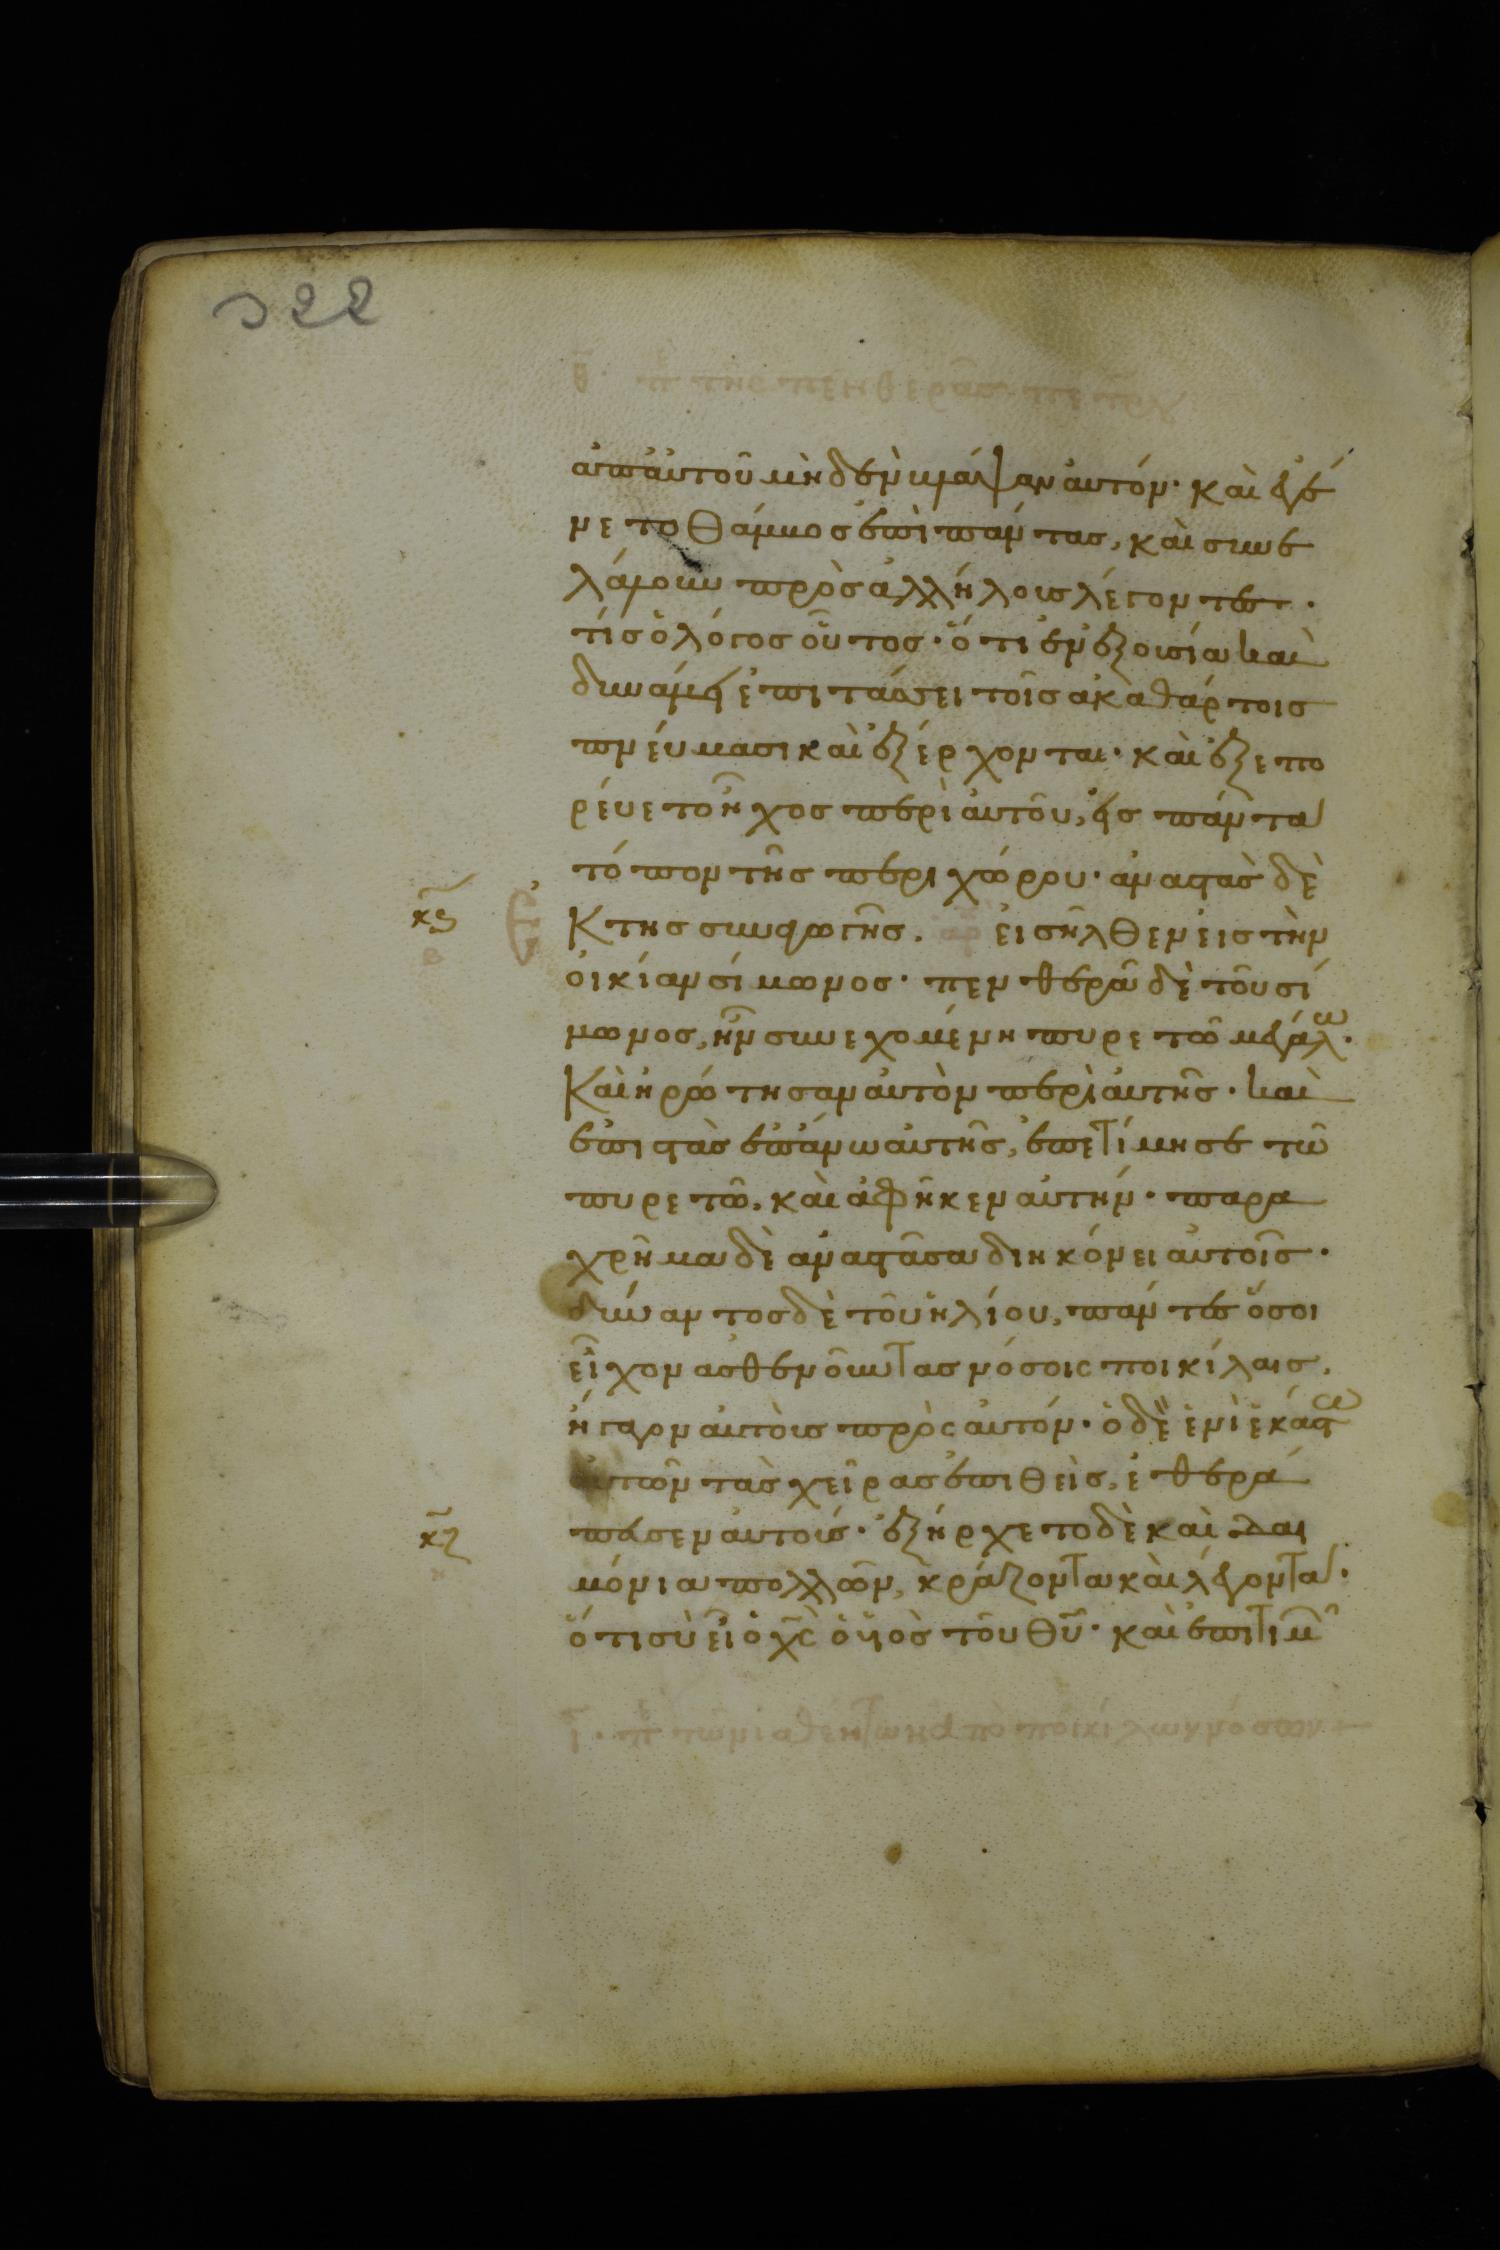 322
θ̄ · π̅ε̅ τῆς πενθερᾶς πέτρου
ἀπ' αὐτοῦ μηδὲν βλάψαν αὐτόν· καὶ ἐγέ
νετο θάμβος ἐπὶ πάντας, καὶ συνε
λάλουν πρὸς ἀλλήλους λέγοντες·
τίς ὁ λόγος οὗτος· ὅτι ἐν ἐξουσία καὶ
δυνάμει ἐπιτάσσει τοῖς ἀκαθάρτοις
πνεύμασι καὶ ἐξέρχονται· καὶ ἐξεπο
ρεύετο ἦχος περὶ αὐτοῦ, εἰς πάντα
τόπον τῆς περιχώρου· ἀναστὰς δὲ
κ̅ς̅ ἐκ της συναγωγῆς. εἰσῆλθεν εἰς τὴν
οἰκίαν σίμωνος· πενθερὰ δὲ τοῦ σί
μωνος, ἦν συνεχομένη πυρετῶ μεγάλω·
Καὶ ἠρώτησαν αὐτὸν περὶ αὐτῆς· καὶ
ἐπιστὰς ἐπάνω αὐτῆς, ἐπετίμησε τῶ
πυρετῶ, καὶ ἀφῆκεν αὐτήν· παρα
χρῆμα δὲ ἀναστᾶσα διηκόνει αὐτοῖς·
δύναντος δὲ τοῦ ἡλίου, πάντες ὅσοι
εἶχον ἀσθενοῦντας νόσοις ποικίλαις,
ἤγαγον αὐτοὺς πρὸς αὐτόν· ὁ δὲ ἑνὶ ἑκάστω
αὐτῶν τὰς χεῖρας ἐπιθεὶς, ἐθερά
κ̅ζ̅ πευσεν αὐτούς· ἐξήρχετο δὲ καὶ δαι
μόνια πολλῶν, κράζοντα καὶ λέγοντα·
ὅτι σὺ εἶ ὁ χ̅ς̅ ὁ υἱὸς τοῦ θ̅υ̅· καὶ ἐπιτιμῶ
ῑ · π̅ε̅ τῶν ἰαθέντων ἀπὸ ποικίλων νόσων